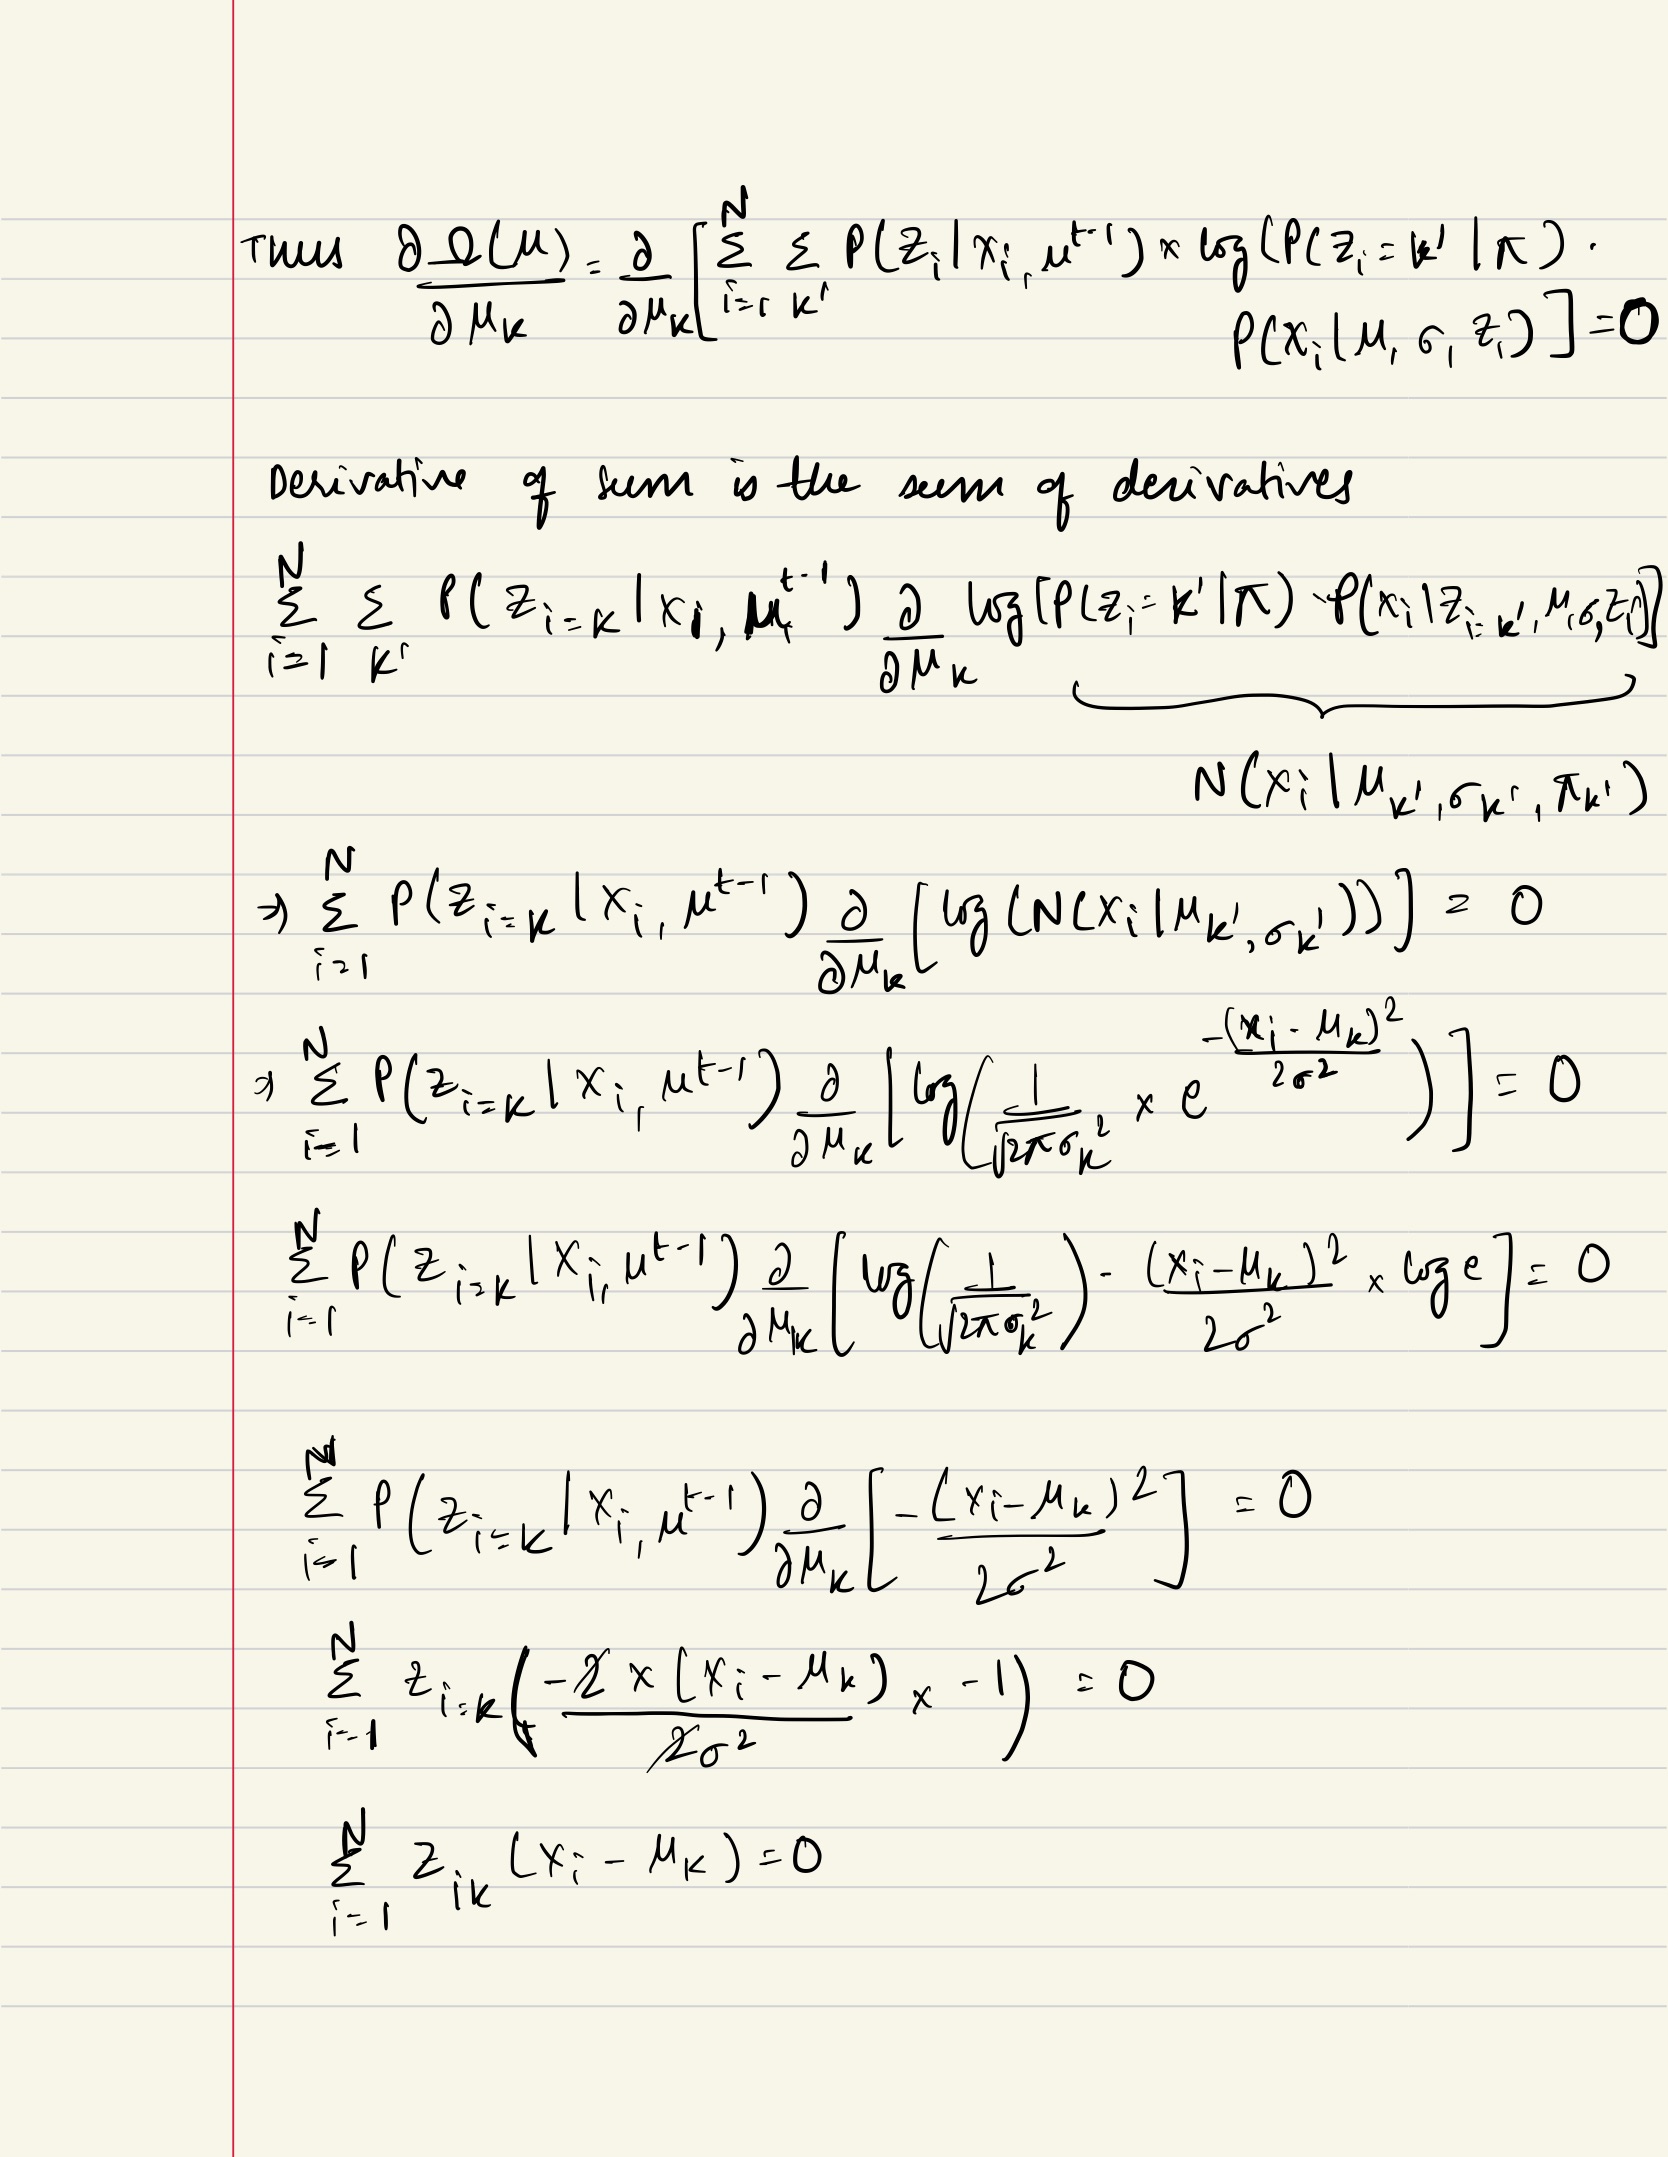 Thus ∂Ω(μ)/∂μ_k = ∂/∂μ_k [ Σ_{i=1}^{N} Σ_{k'} P(z_i | x_i, μ^{t-1}) × log(P(z_i = k' | π) ·
P(x_i | μ, σ, z_i) ] = 0
Derivative of sum is the sum of derivatives
Σ_{i=1}^{N} Σ_{k'} P(z_{i=k} | x_i, μ^{t-1}) ∂/∂μ_k log[P(z_i = k' | π) · P(x_i | z_{i=k'}, μ, σ, z_i)]
N(x_i | μ_{k'}, σ_{k'}, π_{k'})
⇒ Σ_{i=1}^{N} P(z_{i=k} | x_i, μ^{t-1}) ∂/∂μ_k [log(N(x_i | μ_{k'}, σ_{k'}))] = 0
⇒ Σ_{i=1}^{N} P(z_{i=k} | x_i, μ^{t-1}) ∂/∂μ_k [log(1/√(2πσ_k^2) × e^{-(x_i - μ_k)^2/2σ^2})] = 0
Σ_{i=1}^{N} P(z_{i=k} | x_i, μ^{t-1}) ∂/∂μ_k [log(1/√(2πσ_k^2)) - (x_i - μ_k)^2/2σ^2 × log e] = 0
Σ_{i=1}^{N} P(z_{i=k} | x_i, μ^{t-1}) ∂/∂μ_k [-(x_i - μ_k)^2/2σ^2] = 0
Σ_{i=1}^{N} z_{i=k} (-2 × (x_i - μ_k)/2σ^2 × -1) = 0
Σ_{i=1}^{N} z_{ik} (x_i - μ_k) = 0